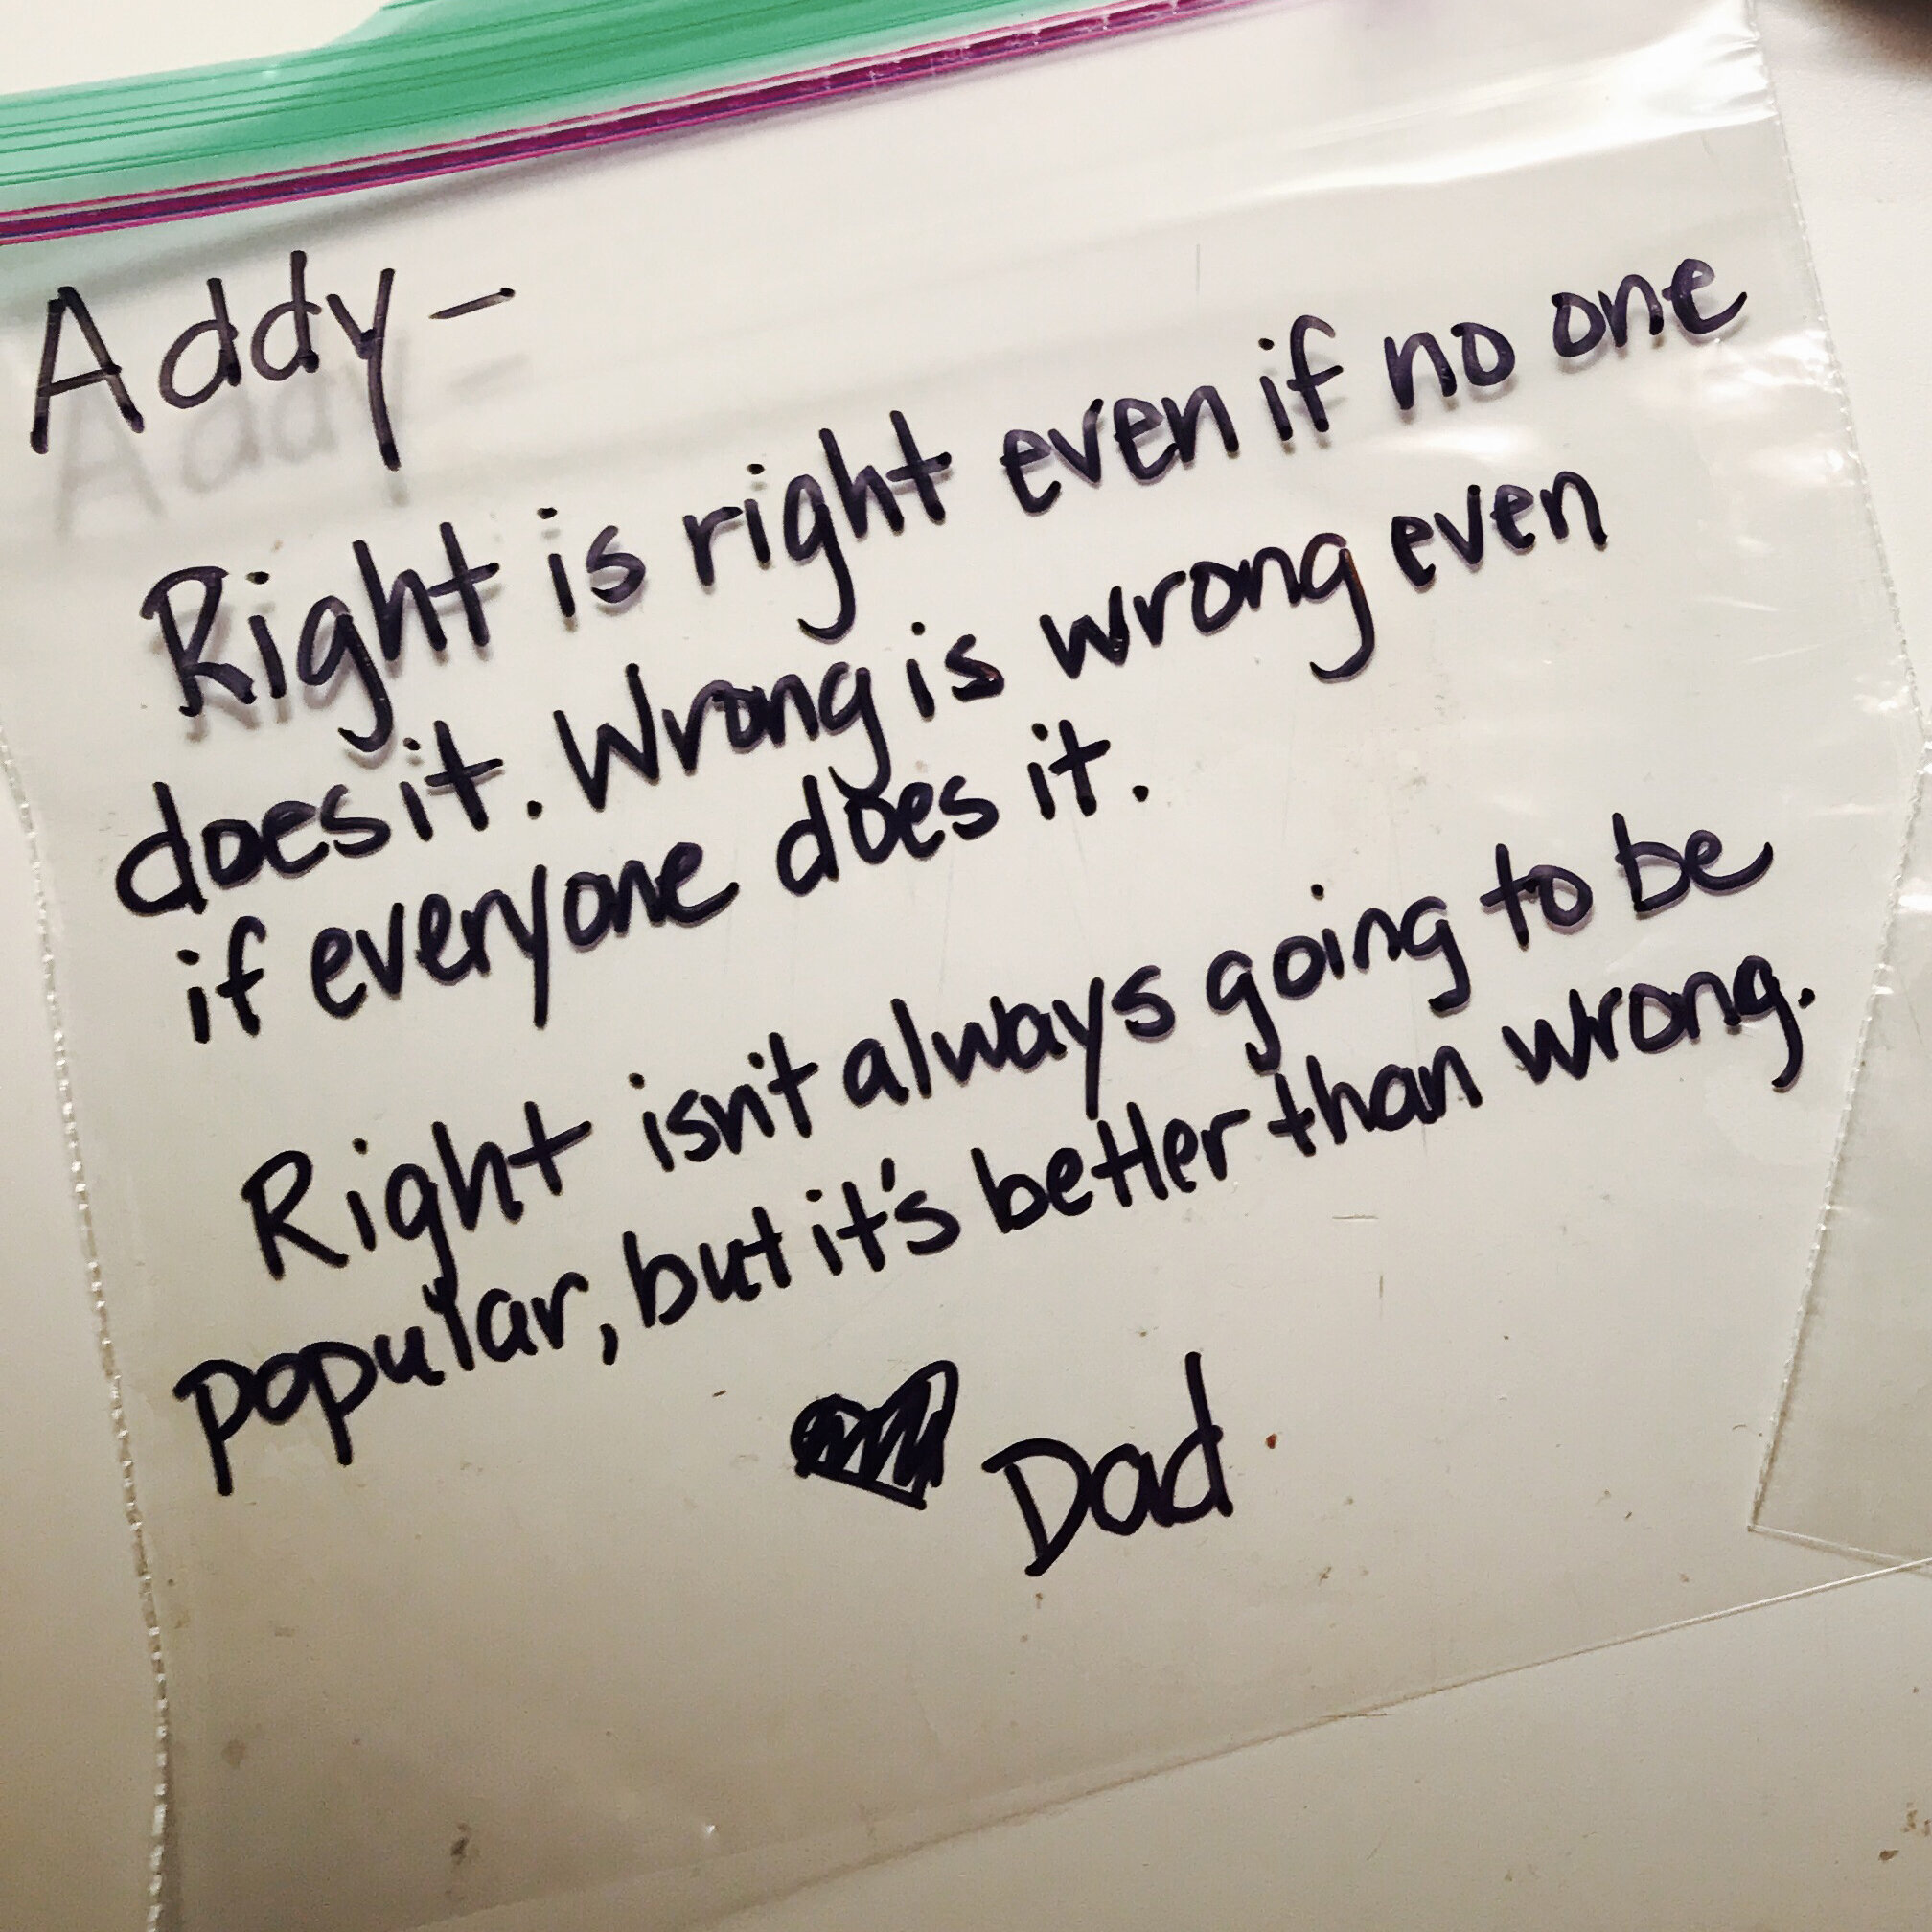 Addy -
Right is right even if no one
does it. Wrong is wrong even
if everyone does it.
Right isn't always going to be
popular, but it's better than wrong.
♥ Dad